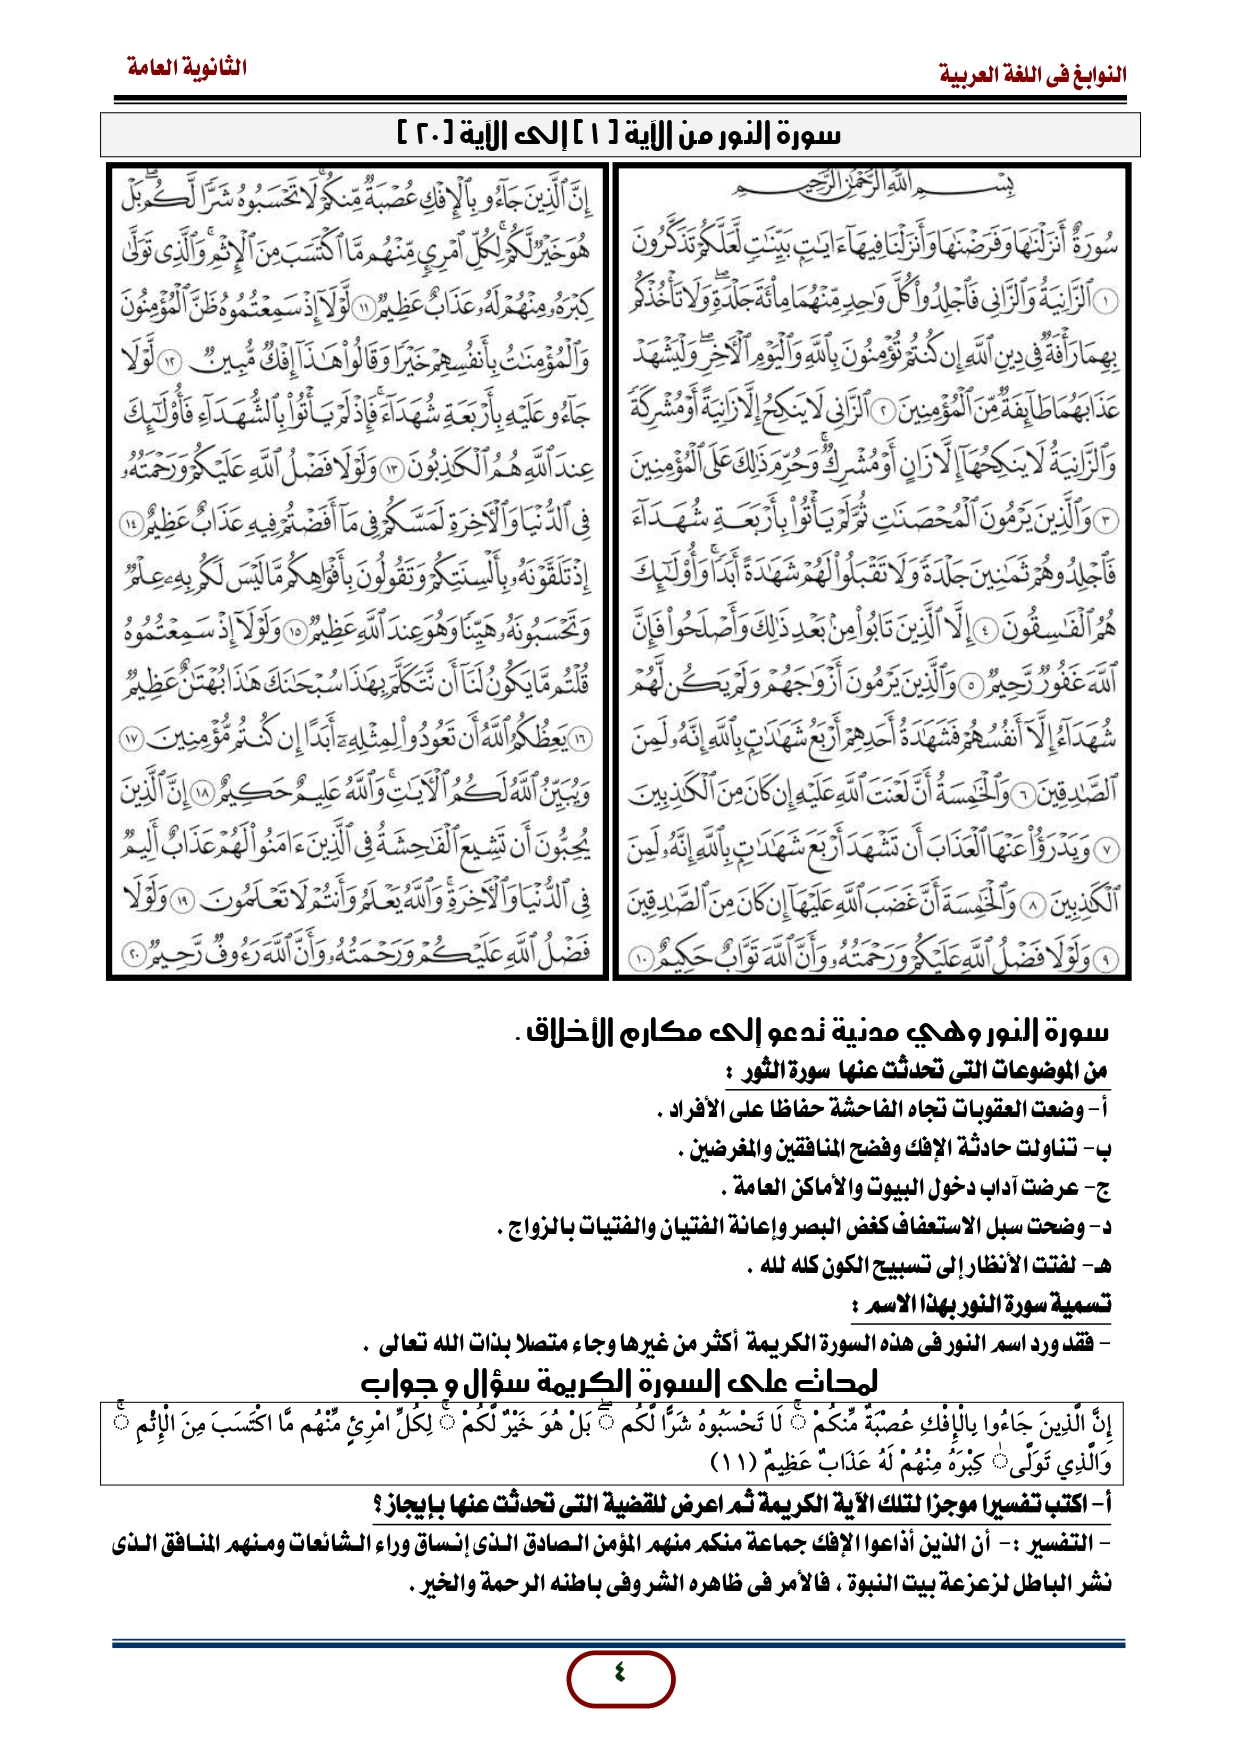 النوابغ فى اللغة العربية
الثانوية العامة
سورة النور من الآية [ ١ ] إلى الآية [ ٢٠ ]
بِسْمِ اللَّهِ الرَّحْمَٰنِ الرَّحِيمِ
سُورَةٌ أَنزَلْنَٰهَا وَفَرَضْنَٰهَا وَأَنزَلْنَا فِيهَآ ءَايَٰتٍۭ بَيِّنَٰتٍ لَّعَلَّكُمْ تَذَكَّرُونَ
١ ٱلزَّانِيَةُ وَٱلزَّانِى فَٱجْلِدُوا۟ كُلَّ وَٰحِدٍ مِّنْهُمَا مِا۟ئَةَ جَلْدَةٍ ۖ وَلَا تَأْخُذْكُم
بِهِمَا رَأْفَةٌ فِى دِينِ ٱللَّهِ إِن كُنتُمْ تُؤْمِنُونَ بِٱللَّهِ وَٱلْيَوْمِ ٱلْـَٔاخِرِ ۖ وَلْيَشْهَدْ
عَذَابَهُمَا طَآئِفَةٌ مِّنَ ٱلْمُؤْمِنِينَ ٢ ٱلزَّانِى لَا يَنكِحُ إِلَّا زَانِيَةً أَوْ مُشْرِكَةً
وَٱلزَّانِيَةُ لَا يَنكِحُهَآ إِلَّا زَانٍ أَوْ مُشْرِكٌ ۚ وَحُرِّمَ ذَٰلِكَ عَلَى ٱلْمُؤْمِنِينَ
٣ وَٱلَّذِينَ يَرْمُونَ ٱلْمُحْصَنَٰتِ ثُمَّ لَمْ يَأْتُوا۟ بِأَرْبَعَةِ شُهَدَآءَ
فَٱجْلِدُوهُمْ ثَمَٰنِينَ جَلْدَةً وَلَا تَقْبَلُوا۟ لَهُمْ شَهَٰدَةً أَبَدًا ۚ وَأُو۟لَٰٓئِكَ
هُمُ ٱلْفَٰسِقُونَ ٤ إِلَّا ٱلَّذِينَ تَابُوا۟ مِنۢ بَعْدِ ذَٰلِكَ وَأَصْلَحُوا۟ فَإِنَّ
ٱللَّهَ غَفُورٌ رَّحِيمٌ ٥ وَٱلَّذِينَ يَرْمُونَ أَزْوَٰجَهُمْ وَلَمْ يَكُن لَّهُمْ
شُهَدَآءُ إِلَّآ أَنفُسُهُمْ فَشَهَٰدَةُ أَحَدِهِمْ أَرْبَعُ شَهَٰدَٰتٍۭ بِٱللَّهِ إِنَّهُۥ لَمِنَ
ٱلصَّٰدِقِينَ ٦ وَٱلْخَٰمِسَةُ أَنَّ لَعْنَتَ ٱللَّهِ عَلَيْهِ إِن كَانَ مِنَ ٱلْكَٰذِبِينَ
٧ وَيَدْرَؤُا۟ عَنْهَا ٱلْعَذَابَ أَن تَشْهَدَ أَرْبَعَ شَهَٰدَٰتٍۭ بِٱللَّهِ إِنَّهُۥ لَمِنَ
ٱلْكَٰذِبِينَ ٨ وَٱلْخَٰمِسَةَ أَنَّ غَضَبَ ٱللَّهِ عَلَيْهَآ إِن كَانَ مِنَ ٱلصَّٰدِقِينَ
٩ وَلَوْلَا فَضْلُ ٱللَّهِ عَلَيْكُمْ وَرَحْمَتُهُۥ وَأَنَّ ٱللَّهَ تَوَّابٌ حَكِيمٌ ١٠
إِنَّ ٱلَّذِينَ جَآءُو بِٱلْإِفْكِ عُصْبَةٌ مِّنكُمْ ۚ لَا تَحْسَبُوهُ شَرًّا لَّكُم ۖ بَلْ
هُوَ خَيْرٌ لَّكُمْ ۚ لِكُلِّ ٱمْرِئٍ مِّنْهُم مَّا ٱكْتَسَبَ مِنَ ٱلْإِثْمِ ۚ وَٱلَّذِى تَوَلَّىٰ
كِبْرَهُۥ مِنْهُمْ لَهُۥ عَذَابٌ عَظِيمٌ ١١ لَّوْلَآ إِذْ سَمِعْتُمُوهُ ظَنَّ ٱلْمُؤْمِنُونَ
وَٱلْمُؤْمِنَٰتُ بِأَنفُسِهِمْ خَيْرًا وَقَالُوا۟ هَٰذَآ إِفْكٌ مُّبِينٌ ١٢ لَّوْلَا
جَآءُو عَلَيْهِ بِأَرْبَعَةِ شُهَدَآءَ ۚ فَإِذْ لَمْ يَأْتُوا۟ بِٱلشُّهَدَآءِ فَأُو۟لَٰٓئِكَ
عِندَ ٱللَّهِ هُمُ ٱلْكَٰذِبُونَ ١٣ وَلَوْلَا فَضْلُ ٱللَّهِ عَلَيْكُمْ وَرَحْمَتُهُۥ
فِى ٱلدُّنْيَا وَٱلْـَٔاخِرَةِ لَمَسَّكُمْ فِى مَآ أَفَضْتُمْ فِيهِ عَذَابٌ عَظِيمٌ ١٤
إِذْ تَلَقَّوْنَهُۥ بِأَلْسِنَتِكُمْ وَتَقُولُونَ بِأَفْوَاهِكُم مَّا لَيْسَ لَكُم بِهِۦ عِلْمٌ
وَتَحْسَبُونَهُۥ هَيِّنًا وَهُوَ عِندَ ٱللَّهِ عَظِيمٌ ١٥ وَلَوْلَآ إِذْ سَمِعْتُمُوهُ
قُلْتُم مَّا يَكُونُ لَنَآ أَن نَّتَكَلَّمَ بِهَٰذَا سُبْحَٰنَكَ هَٰذَا بُهْتَٰنٌ عَظِيمٌ
١٦ يَعِظُكُمُ ٱللَّهُ أَن تَعُودُوا۟ لِمِثْلِهِۦٓ أَبَدًا إِن كُنتُم مُّؤْمِنِينَ ١٧
وَيُبَيِّنُ ٱللَّهُ لَكُمُ ٱلْـَٔايَٰتِ ۚ وَٱللَّهُ عَلِيمٌ حَكِيمٌ ١٨ إِنَّ ٱلَّذِينَ
يُحِبُّونَ أَن تَشِيعَ ٱلْفَٰحِشَةُ فِى ٱلَّذِينَ ءَامَنُوا۟ لَهُمْ عَذَابٌ أَلِيمٌ
فِى ٱلدُّنْيَا وَٱلْـَٔاخِرَةِ ۚ وَٱللَّهُ يَعْلَمُ وَأَنتُمْ لَا تَعْلَمُونَ ١٩ وَلَوْلَا
فَضْلُ ٱللَّهِ عَلَيْكُمْ وَرَحْمَتُهُۥ وَأَنَّ ٱللَّهَ رَءُوفٌ رَّحِيمٌ ٢٠
سورة النور وهي مدنية تدعو إلى مكارم الأخلاق .
من الموضوعات التى تحدثت عنها سورة الثور :
أ- وضعت العقوبات تجاه الفاحشة حفاظا على الأفراد .
ب- تناولت حادثة الإفك وفضح المنافقين والمغرضين .
ج- عرضت آداب دخول البيوت والأماكن العامة .
د- وضحت سبل الاستعفاف كغض البصر وإعانة الفتيان والفتيات بالزواج .
هـ- لفتت الأنظار إلى تسبيح الكون كله لله .
تسمية سورة النور بهذا الاسم :
- فقد ورد اسم النور فى هذه السورة الكريمة أكثر من غيرها وجاء متصلا بذات الله تعالى .
لمحات على السورة الكريمة سؤال و جواب
إِنَّ الَّذِينَ جَاءُوا بِالْإِفْكِ عُصْبَةٌ مِّنكُمْ ۚ لَا تَحْسَبُوهُ شَرًّا لَّكُم ۖ بَلْ هُوَ خَيْرٌ لَّكُمْ ۚ لِكُلِّ امْرِئٍ مِّنْهُم مَّا اكْتَسَبَ مِنَ الْإِثْمِ ۚ
وَالَّذِي تَوَلَّىٰ كِبْرَهُ مِنْهُمْ لَهُ عَذَابٌ عَظِيمٌ (١١)
أ- اكتب تفسيرا موجزا لتلك الآية الكريمة ثم اعرض للقضية التى تحدثت عنها بإيجاز ؟
- التفسير :- أن الذين أذاعوا الإفك جماعة منكم منهم المؤمن الصادق الذى إنساق وراء الشائعات ومنهم المنافق الذى
نشر الباطل لزعزعة بيت النبوة ، فالأمر فى ظاهره الشر وفى باطنه الرحمة والخير .
٤